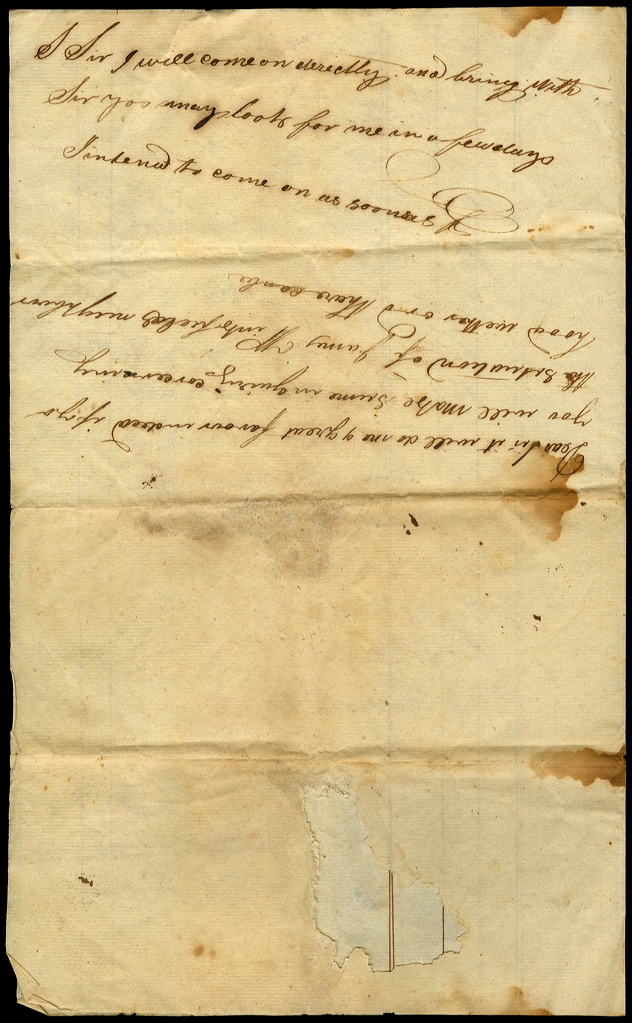 I Sir I will come on derectly and bring with
Sir you may look for me in a few days
I intend to come on as soon as I
Dear Sir it will do me a great favour indeed if yo
you will make sume inquirey concerning
the setuation of Jamey Wintsfield neighbour
hood wether and there